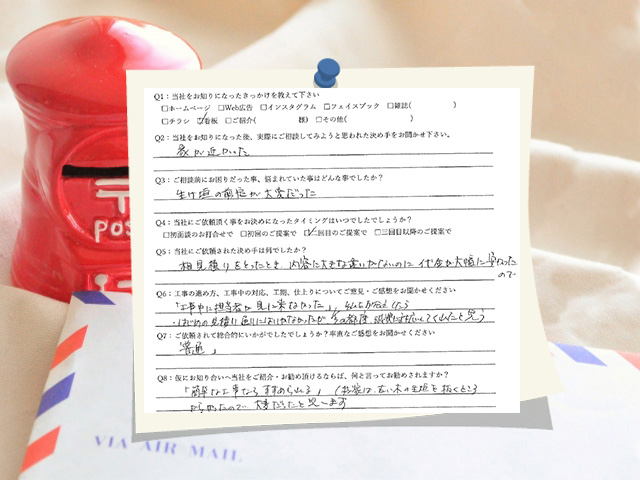 Q1：当社をお知りになったきっかけを教えて下さい
□ホームページ □Web広告 □インスタグラム □フェイスブック □雑誌( )
□チラシ ☑看板 □ご紹介( 様) □その他( )
Q2：当社をお知りになった後、実際にご相談してみようと思われた決め手をお聞かせ下さい。
家が近かった
Q3：ご相談前にお困りだった事、悩まれていた事はどんな事でしたか？
生け垣の剪定が大変だった
Q4：当社にご依頼頂く事をお決めになったタイミングはいつでしたでしょうか？
□初面談のお打合せで □初回のご提案で ☑二回目のご提案で □三回目以降のご提案で
Q5：当社にご依頼された決め手は何でしたか？
相見積りをとったとき、内容に大きな違いがないのに代金が大幅に安なった
ので
Q6：工事の進め方、工事中の対応、工期、仕上りについてご意見・ご感想をお聞かせください
「工事中に担当者が見に来なかった」
・はじめの見積り通りにはいかなかったが、その都度、してくれたと思う
Q7：ご依頼されて総合的にいかがでしたでしょうか？率直なご感想をお聞かせください
「普通」
Q8：仮にお知り合いへ当社をご紹介・お勧め頂けるならば、何と言ってお勧めされますか？
「簡単な工事ならすすめられる」 (お宅は、古い木の生垣を抜くところ
からだったので 大変だったと思います
POS
VIA AIR MAIL